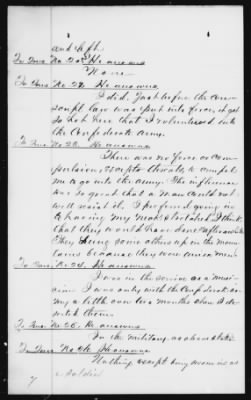 and left.
To Int. No. 20. He answers
None
To Int. No. 22. He answers
I did. Just before the con-
script law was put into force, it got
so hot here that I volunteered into
the Confederate army.
To Int. No. 23. He answers
There was no force or com-
pulsion, except threats, to compel
me to go into the army. The influence
was so great that a man could not
well resist it. I preferred going in
to having my neck stretched. I think
that they would have done so
They hung some others up on the moun-
tains because they were union men.
To Int. No. 24. He answers
I was in the service as a mu-
sician. I was only with the Confederates in
my a little over two months when I de-
serted them.
To Int. No. 25. He answers
In the military, as above stated.
To Int. No. 26. He answers
Nothing, except being in as
a soldier
7